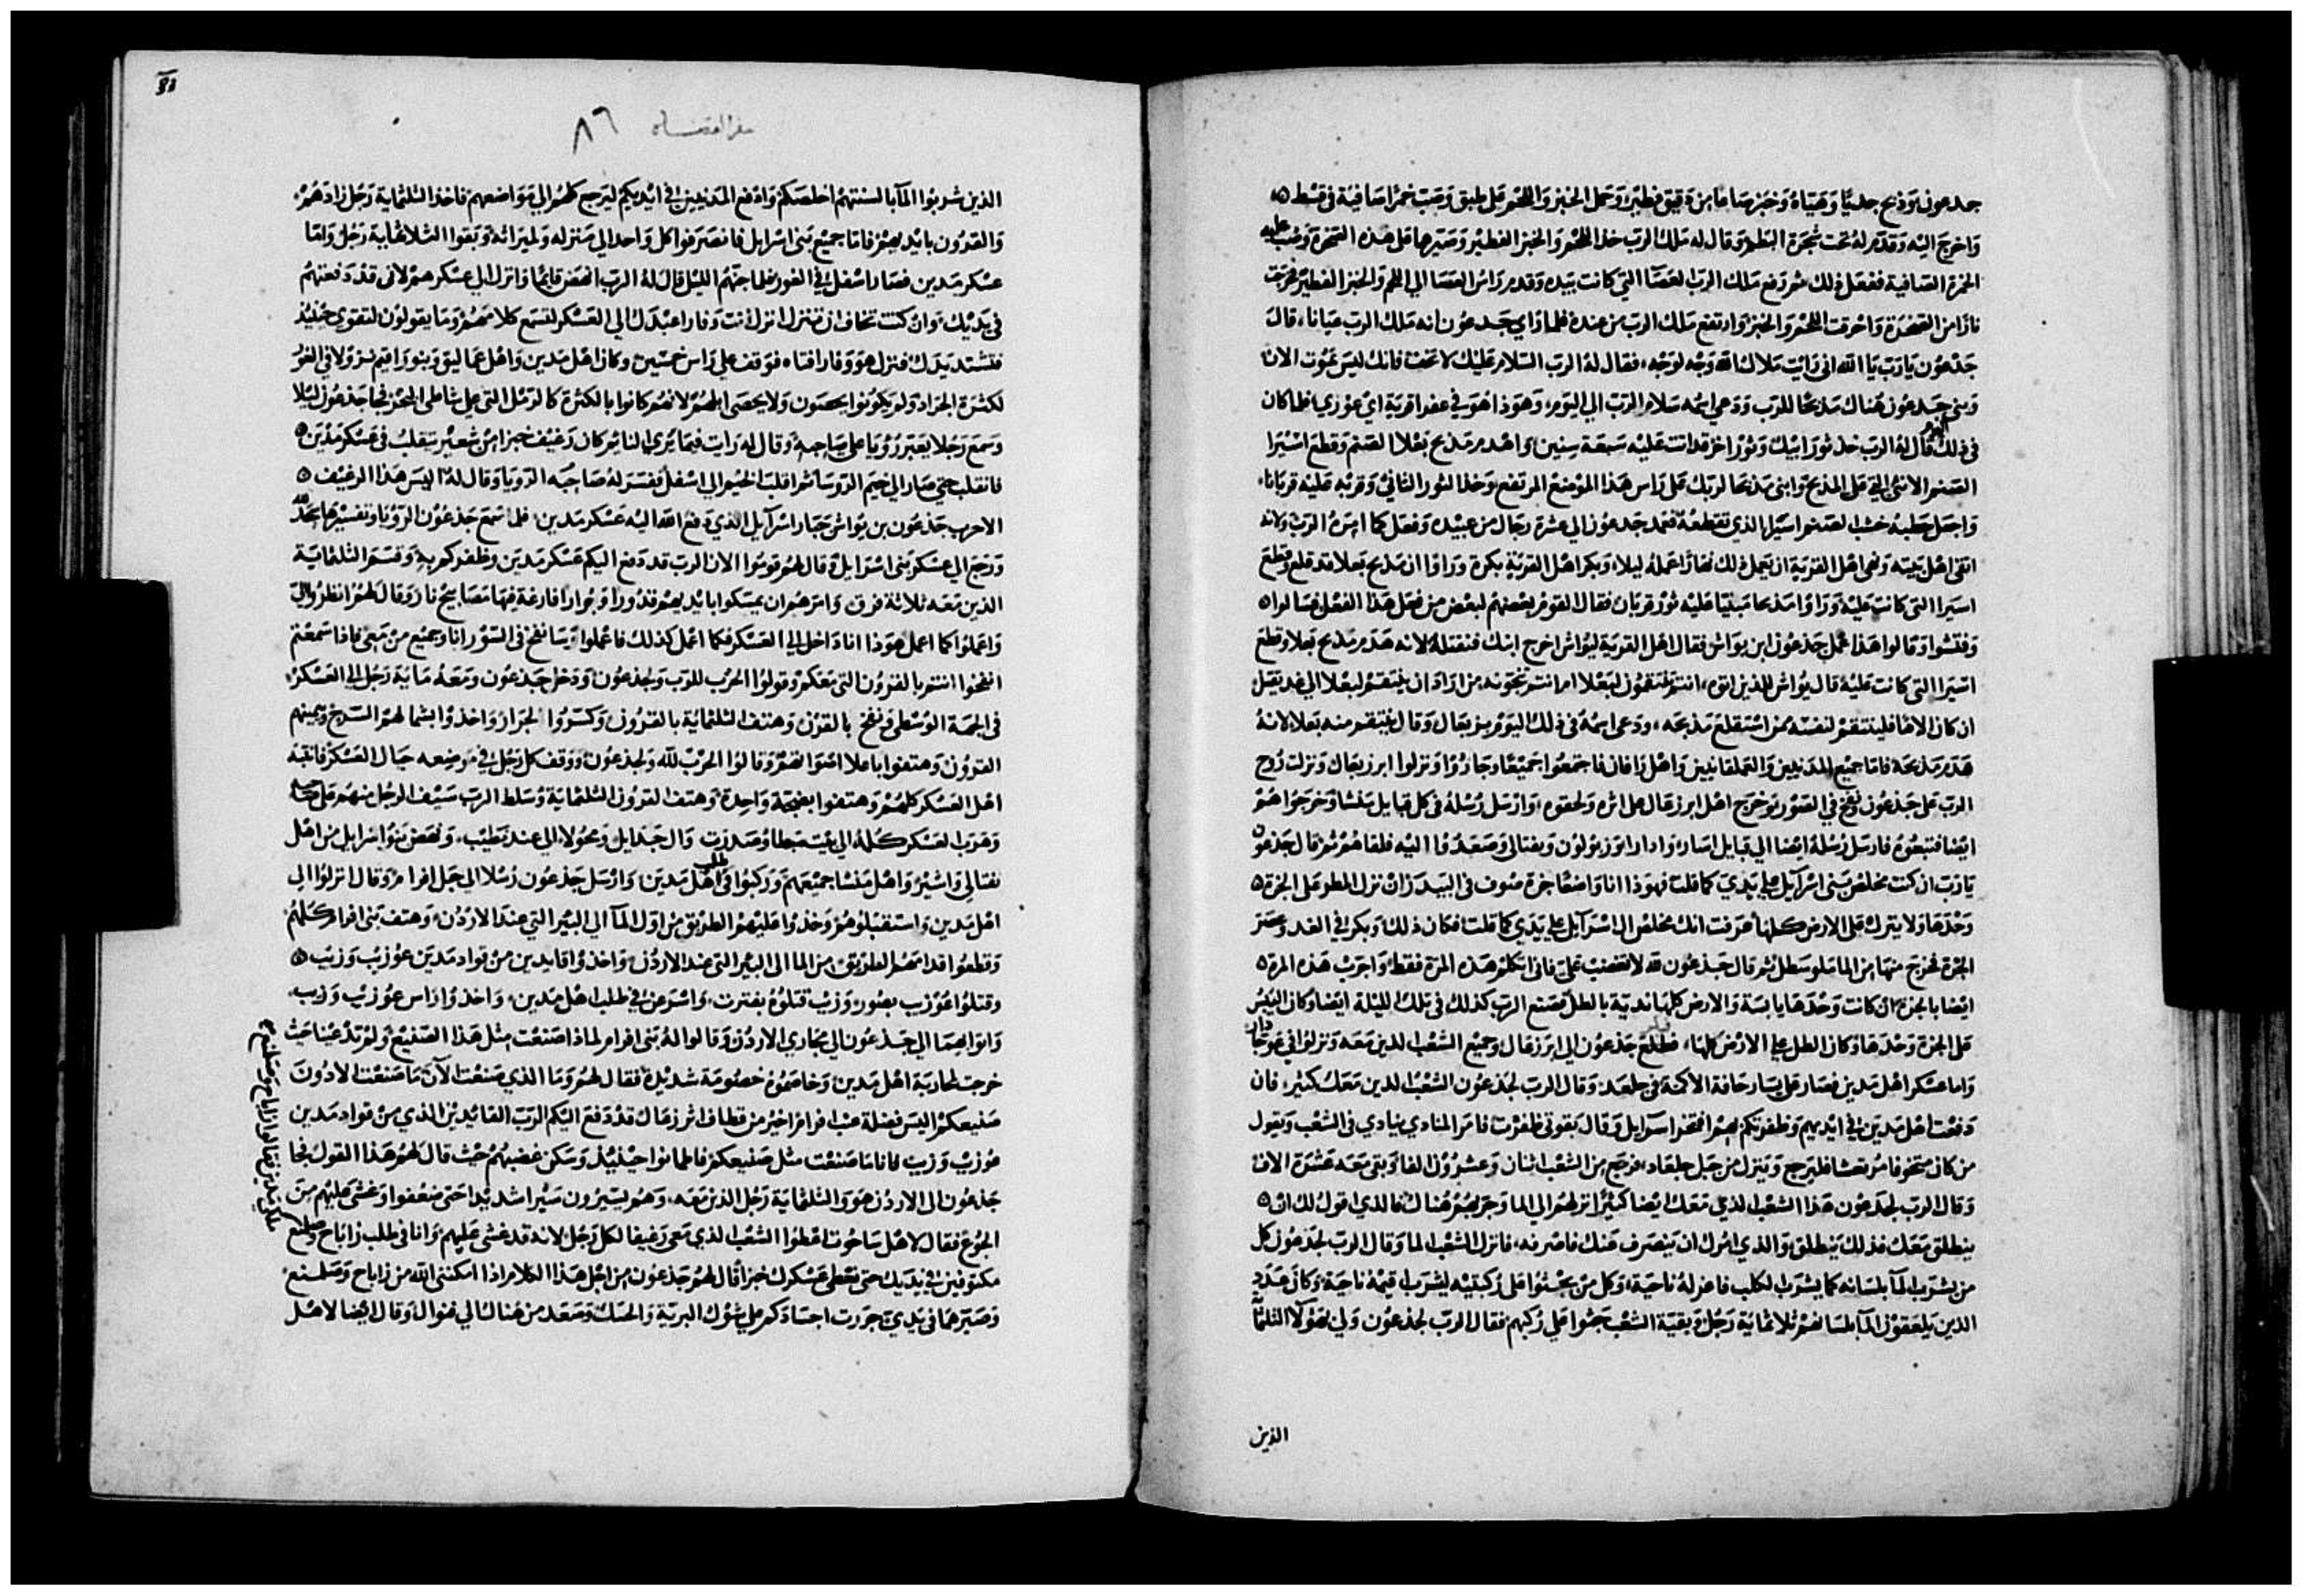 جدعون وذبح جديًا وهياه وخبز صاعا من دقيق فطير وحمل الخبز واللحم على طبق وصب خمرا صافية في قسط
واخرج اليه وقدم له تحت شجرة البطم وقال له ملاك الرب خذ اللحم والخبز الفطير وصيرها على هذه الصخرة وصب عليه
الخمرة الصافية ففعل ذلك ثم رفع ملاك الرب العصا التي كانت بيده وقدم راس العصا الي اللحم والخبز الفطير فخرجت
نارا من الصخرة واحرقت اللحم والخبز وارتفع ملاك الرب من عنده فلما راي جدعون انه ملك الرب عيانا، قال
جدعون يا رب يا الله اني رايت ملاك الله وجه لوجه، فقال له الرب السلام عليك لا تخف فانك ليس تموت الان
وبني جدعون هناك مذبحا للرب ودعي اسمه سلام الرب الي اليوم، وهوذا هو في عفرا قرية ابي عوزي فلما كان
في ذلك اليوم قال له الرب خذ ثور ابيك وثور اخر قد اتت عليه سبعة سنين واهدم مذبح بعلا الصنم وقطع اسيرا
الصنم الانثي التي على المذبح وابني مذبحا لربك على راس هذا الموضع المرتفع وخذ الثور الثاني وقربه عليه قربانا،
واجعل حطبه خشب الصنم اسيرا الذي تقطعه فعمد جدعون الي عشرة رجال من عبيده وفعل كما امره الرب ولانه
اتقي اهل بيته ونهي اهل القرية ان يعمل ذلك نهارا عمله ليلا، وبكر اهل القرية بكرة وراوا ان مذبح بعلا قد قلع وقطع
اسيرا التي كانت عليه وراوا مذبحا مبنيا عليه ثور قربان فقال القوم بعضهم لبعض من فعل هذا الفعل فسالوا
وفتشوا وقالوا هذا عمل جدعون ابن يواش فقال اهل القرية ليواش اخرج ابنك فنقتله لانه هدم مذبح بعلا وقطع
اسيرا التي كانت عليه قال يواش للذين اتوه، انتم تنتقمون لبعلا ام انتم تنجونه، من اراد ان ينتقم لبعلا الي غد يقتل
ان كان الاها فلينتقم لنفسه ممن استقلع مذبحه، ودعي اسمه في ذلك اليوم يربعال وقال ينتقم منه بعلا لانه
هدم مذبحه فاما جميع المدينيين والعملقانيين واهل رافان فاجتمعوا جميعا وجازوا ونزلوا ابرزعال ونزلت روح
الرب على جدعون ونفخ في الصور وخرج اهل ابرزعال على اثره ولحقوه، وارسل رسله في كل قبايل منشا وخرجوا هم
ايضا فتبعوه فارسل رسله ايضا الي قبايل اسار، وادار وزبولون ونفتالي وصعدوا اليه فلقاهم ثم قال جدعون
يا رب ان كنت مخلص بني اسرايل علي يدي كما قلت فهوذا انا واضعا جزة صوف في البيدر ان نزل المطر على الجزة
وحدها ولا ينزل على الارض كلها عرفت انك مخلص ال اسرايل علي يدي كما قلت فكان ذلك وبكر في الغد وعصر
الجزة فخرج منها من الما ملو سطل ثم قال جدعون لله لا تغضب علي فاني اتكلم هذه المرة فقط، واجرب هذه المرة
ايضا بالجزة ان كانت وحدها يابسة والارض كلها ندية بالطل فصنع الرب كذلك في تلك الليلة ايضا وكان اليبس
على الجزة وحدها وكان الطل على الارض كلها، فطلع جدعون الي ابرزعال وجميع الشعب الذين معه ونزلوا في عوجاذار
واما عسكر اهل مدين فصار على يسار حافة الاكمة في جلعد، وقال الرب لجدعون الشعب الذين معك كثير، فان
دفعت اهل مدين في ايديهم وظفرتكم بهم افتخر اسرايل وقال بقوتي ظفرت فامر المنادي ينادي في الشعب ويقول
من كان متخوفا مرتعشا فليرجع وينزل من جبل جلعاد، فرجع من الشعب اثنان وعشرون الفا وبقي معه عشرة الاف
وقال الرب لجدعون هذا الشعب الذي معك ايضا كثيرا نزلهم الي الما وجربهم هناك فالذي اقول لك ان
ينطلق معك فذلك ينطلق والذي امرك ان ينصرف عنك فاصرفه، فانزل الشعب الما وقال الرب لجدعون كل
من يشرب الما بلسانه كما يشرب الكلب فاعزله ناحية، وكل من يجثوا على ركبتيه ليشرب اقيمه ناحية، وكان عدد
الذين يلعقون الما بلسانهم ثلاثماية رجل وبقية الشعب جثوا علي ركبهم فقال الرب لجدعون ولي بهولا الثلثماية
الذين
سفر القضاه ٨٦
81
الذين شربوا الما بالسنتهم اخلصكم وادفع المدينيين في ايديكم ليرجع كلهم الي مواضعهم فاخذ الثلثماية رجل زادهم،
والقرون بايديهم فاما جميع بني اسرايل فانصرفوا كل واحد الي منزله ولميراثه وبقوا الثلاثماية رجل واما
عسكر مدين فصار اسفل في الغور فلما جنهم الليل قال له الرب انهض قايما وانزل الي عسكرهم لاني قد دفعتهم
في يديك، وان كنت تخاف ان تنزل انزل انت وفارا عبدك الي العسكر لتسمع كلامهم وما يقولون لتقوي حينيذ
فتشتد يديك فنزل هو وفارا فتاه فوقف علي راس خمسين وكان اهل مدين واهل عماليق وبنو راقيم نزولا في الغور
لكثرة الجراد ولم يكونوا يحصون ولا يحصى ابلهم لانهم كانوا بالكثرة كالرمل التي علي شاطي البحر فجا جدعون ليلا
وسمع رجلا يعبر رؤيا على صاحبه وقال له رايت فيما يرى النايم كان رغيف خبزا من شعير يتقلب في عسكر مدين
فانقلب حتى صار الي خيم الروسا ثم اقلب الخيم الي اسفل ففسر له صاحبه الرويا وقال له اليس هذا الرغيف
الا حرب جدعون بن يواش جبار اسرايل الذي دفع الله اليه عسكر مدين، فلما سمع جدعون الرؤيا وتفسيرها سجد لله
ورجع الي عسكر بني اسرايل وقال لهم قوموا الان الرب قد دفع اليكم عسكر مدين وظفركم به وقسم الثلثماية
الذين معه ثلاثة فرق وامرهم ان يمسكوا بايديهم قدورا وجرارا فارغة فيها مصابيح نار وقال لهم انظروا الي
واعملوا كما اعمل هوذا انا داخل الي العسكر فكما اعمل كذلك فاعملوا وسانفخ في السور انا وجميع من معي فاذا سمعتم
انفخوا انتم بالقرون التي معكم وقولوا الحرب للرب ولجدعون ودخل جدعون ومعه ماية رجل الي العسكر،
في الجهة الوسطى ونفخ بالقرن وهتف الثلثماية بالقرون وكسروا الجرار واخذوا بشمالهم السرج وبيمينهم
القرون وهتفوا باعلا اصواتهم وقالوا الحرب لله ولجدعون ووقف كل رجل في موضعه حيال العسكر فانتبه
اهل العسكر كلهم وهتفوا بضجة واحدة وهتف القرون الثلثماية وسلط الرب سيف الرجل منهم على صاحبه
وهرب العسكر كله الي بيت سبطا وصدرت وال جدايل ومحولا الي عند نطيب، ونهض بنو اسرايل من اهل
نفتالي واشير واهل منشا جميعهم وركبوا في طلب اهل مدين وارسل جدعون رسلا الي جبل افرام وقال انزلوا الي
اهل مدين واستقبلوهم وخذوا عليهم الطريق من اول الما الي البير التي عند الاردن، وهتف بني افرام كلهم
وقطعوا قدامهم الطريق من الما الي البير التي عند الاردن، واخذوا قايدين من قواد مدين عوزيب وزيب
وقتلوا عوزيب بصور، وزيب قتلوه بفترت، واسرعن في طلب اهل مدين، واخذوا راس عوزيب وزيب
واتوا بهما الي جدعون الي مجاري الاردن وقالوا له بني افرام لماذا صنعت مثل هذا الصنيع ولم تدعينا حيث
خرجت لمحاربة اهل مدين وخاصموه خصومة شديدة، فقال لهم وما الذي صنعت الان ما صنعت الا دون
صنيعكم اليس فضلة عنب افرام اخير من قطاف ابرزعال قد دفع اليكم الرب القايدين الذي من قواد مدين
عوزيب وزيب فانا ما صنعت مثل صنيعكم فاطمانوا حينيذ وسكن غضبهم حيث قال لهم هذا القول فجا
جدعون الي الاردن هو والثلثماية رجل الذين معه، وهم يسيرون سيرا شديدا حتى ضعفوا وغشي عليهم من
الجوع فقال لاهل ساحوت اعطوا الشعب الذي معي رغيفا لكل رجل لانه قد غشي عليهم وانا في طلب زاباح وصلمنع
مكتوفين في يديك حتى نعطي عسكرك خبزا قال لهم جدعون من اجل هذا الكلام اذا امكنني الله من زاباح وصلمنع،
وصيرهما في يدي جررت اجسادكم علي شوك البرية والحسك وصعد من هناك الي فنوال، وقال ايضا لاهل